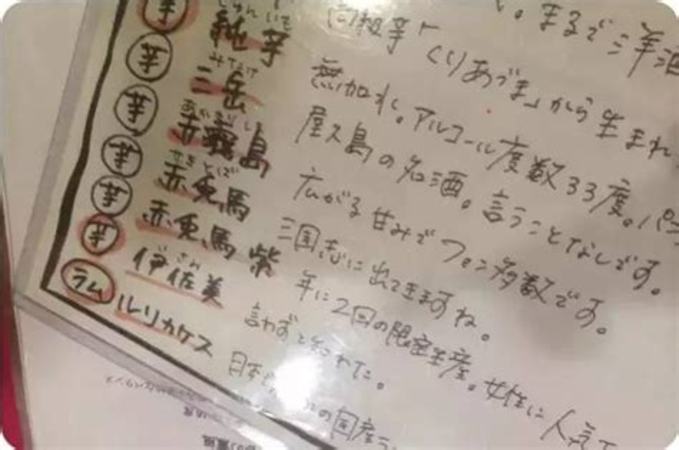 芋 純芋 じゅんいも 高級芋「くりあづま」から生まれ
芋 三岳 みたけ 無加水。アルコール度数33度。
芋 赤霧島 あかきりしま 屋久島の名酒。言うことなしです。
芋 赤兎馬 せきとば 広がる甘みでファン多数です。
芋 赤兎馬 紫 三国志に出てきますね。
芋 伊佐美 いさみ 年に2回の限定生産。女性に人気で
ラム ルリカケス 言わずと知れた。
日本 の国産ラ
。まるで洋酒